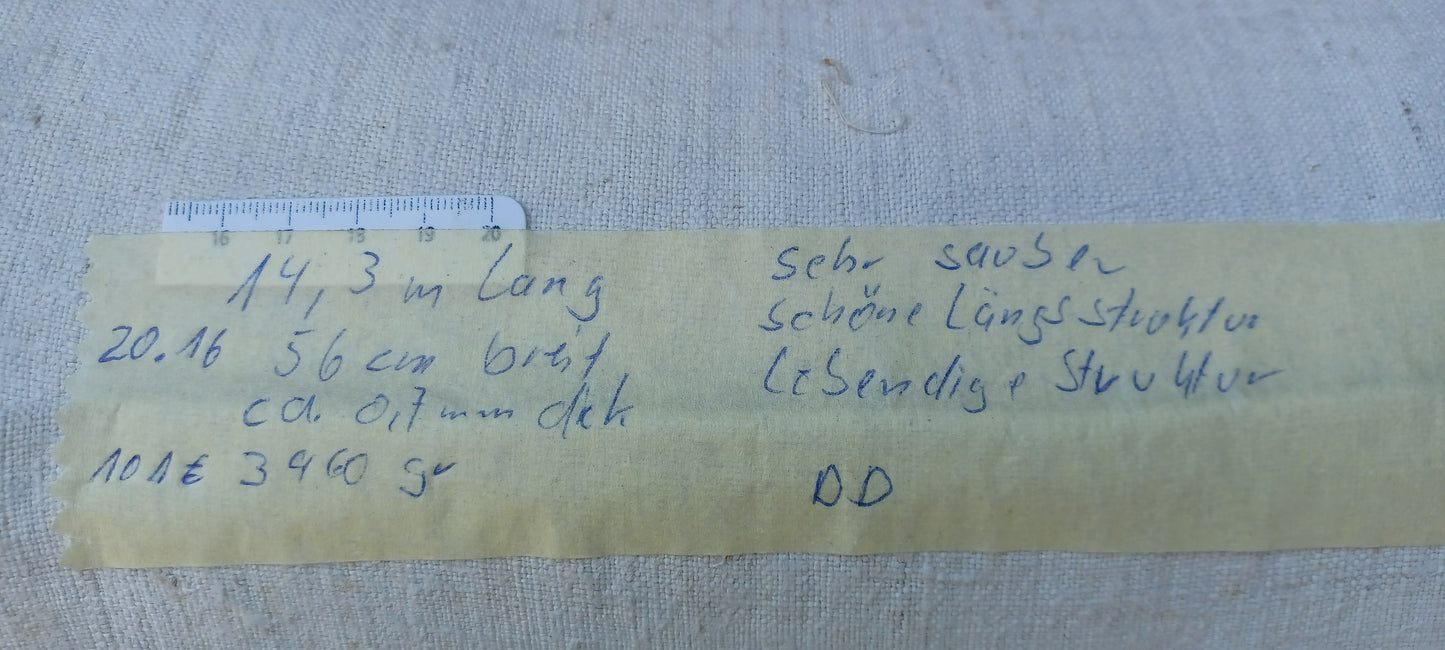 16 17 18 19 20
14,3 m lang
20.16 56 cm breit
ca. 0,7 mm dick
101€ 3960 gr
sehr sauber
schöne Längsstruktur
lebendige Struktur
DD